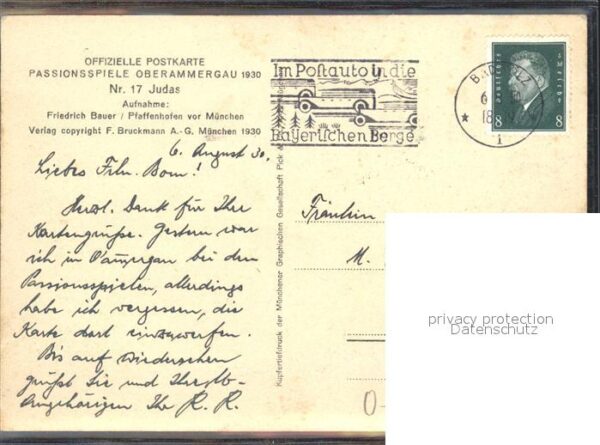 OFFIZIELLE POSTKARTE
PASSIONSSPIELE OBERAMMERGAU 1930
Nr. 17 Judas
Aufnahme:
Friedrich Bauer / Pfaffenhofen vor München
Verlag copyright F. Bruckmann A.-G. München 1930
Im Postauto in die
Bayerischen Berge
BAD TÖLZ
1
Deutsches Reich
8 8
6. August 30.
Liebes Frln.
Herzl. Dank für Ihre
Kartengrüße. Gestern war
ich in O'ammergau bei den
Passionsspielen, allerdings
habe ich vergessen, die
Karte dort einzuwerfen.
Bis auf Wiedersehen
grüßt Sie und Ihre
Angehörigen Ihr R. R.
Kupfertiefdruck der Münchener Graphischen Gesellschaft Pick
Fräulein
M.
privacy protection
Datenschutz
0-